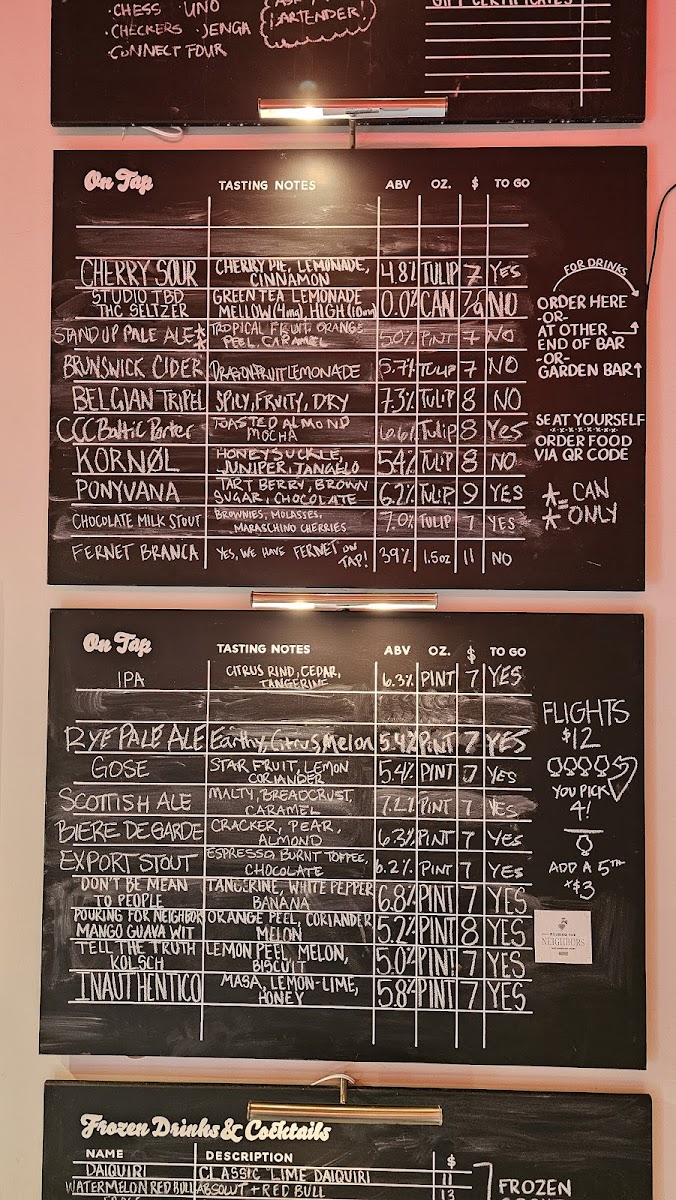 · CHESS · UNO
· CHECKERS · JENGA
· CONNECT FOUR
BARTENDER!
GIFT CERTIFICATES
On Tap TASTING NOTES ABV OZ. $ TO GO
CHERRY SOUR CHERRY PIE, LEMONADE, CINNAMON 4.8% TULIP 7 YES
STUDIO TBD THC SELTZER GREEN TEA LEMONADE MELLOW (4mg), HIGH (10mg) 0.0% CAN 7/9 NO
STAND UP PALE ALE ** TROPICAL FRUIT, ORANGE PEEL, CARAMEL 5.0% PINT 7 NO
BRUNSWICK CIDER DRAGONFRUIT LEMONADE 5.7% TULIP 7 NO
BELGIAN TRIPEL SPICY, FRUITY, DRY 7.3% TULIP 8 NO
CCC Baltic Porter TOASTED ALMOND MOCHA 6.6% TULIP 8 Yes
KORNØL HONEYSUCKLE, JUNIPER, TANGELO 5.4% TULIP 8 NO
PONYVANA TART BERRY, BROWN SUGAR, CHOCOLATE 6.2% TULIP 9 YES
CHOCOLATE MILK STOUT BROWNIES, MOLASSES, MARASCHINO CHERRIES 7.0% TULIP 7 YES
FERNET BRANCA YES, WE HAVE FERNET on TAP! 39% 1.5oz 11 NO
FOR DRINKS
ORDER HERE
-OR-
AT OTHER →
END OF BAR
-OR-
GARDEN BAR↑
SEAT YOURSELF
ORDER FOOD
VIA QR CODE
** = CAN ONLY
On Tap TASTING NOTES ABV OZ. $ TO GO
IPA CITRUS RIND, CEDAR, TANGERINE 6.3% PINT 7 YES
RYE PALE ALE Earthy, Citrus, Melon 5.4% PINT 7 YES
GOSE STAR FRUIT, LEMON CORIANDER 5.4% PINT 7 YES
SCOTTISH ALE MALTY, BREADCRUST, CARAMEL 7.2% PINT 7 YES
BIERE DE GARDE CRACKER, PEAR, ALMOND 6.3% PINT 7 YES
EXPORT STOUT ESPRESSO BURNT TOFFEE, CHOCOLATE 6.2% PINT 7 YES
DON'T BE MEAN TO PEOPLE TANGERINE, WHITE PEPPER BANANA 6.8% PINT 7 YES
POURING FOR NEIGHBOR MANGO GUAVA WIT ORANGE PEEL, CORIANDER MELON 5.2% PINT 8 YES
TELL THE TRUTH KOLSCH LEMON PEEL, MELON, BISCUIT 5.0% PINT 7 YES
INAUTHENTICO MASA, LEMON-LIME, HONEY 5.8% PINT 7 YES
FLIGHTS
$12
YOU PICK
4!
ADD A 5TH
+$3
NEIGHBORS
Frozen Drinks & Cocktails
NAME DESCRIPTION $
DAIQUIRI CLASSIC LIME DAIQUIRI 11
WATERMELON RED BULL ABSOLUT + RED BULL 13
FROZEN